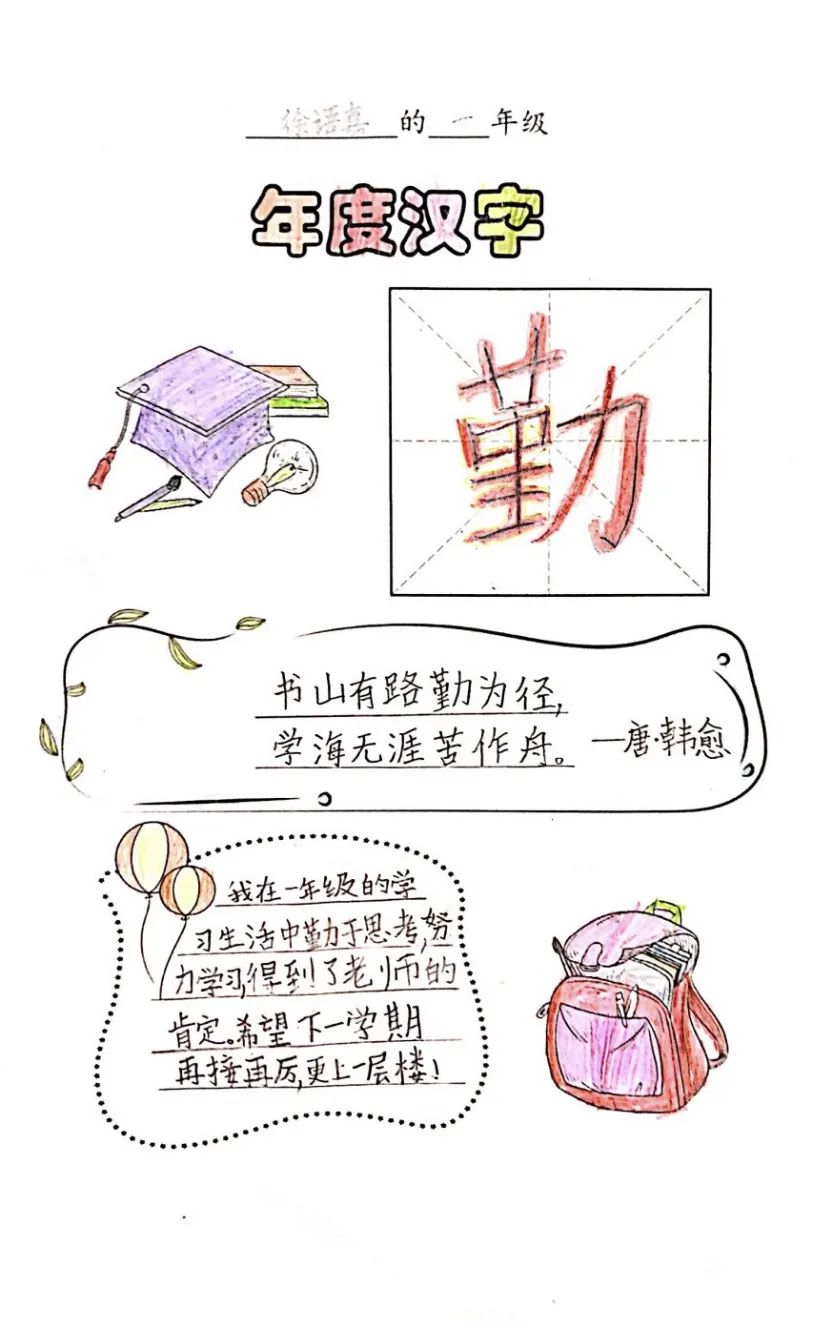 徐语嘉的一年级
年度汉字
勤
书山有路勤为径,
学海无涯苦作舟。—唐·韩愈
我在一年级的学
习生活中勤于思考,努
力学习,得到了老师的
肯定。希望下一学期
再接再厉,更上一层楼!